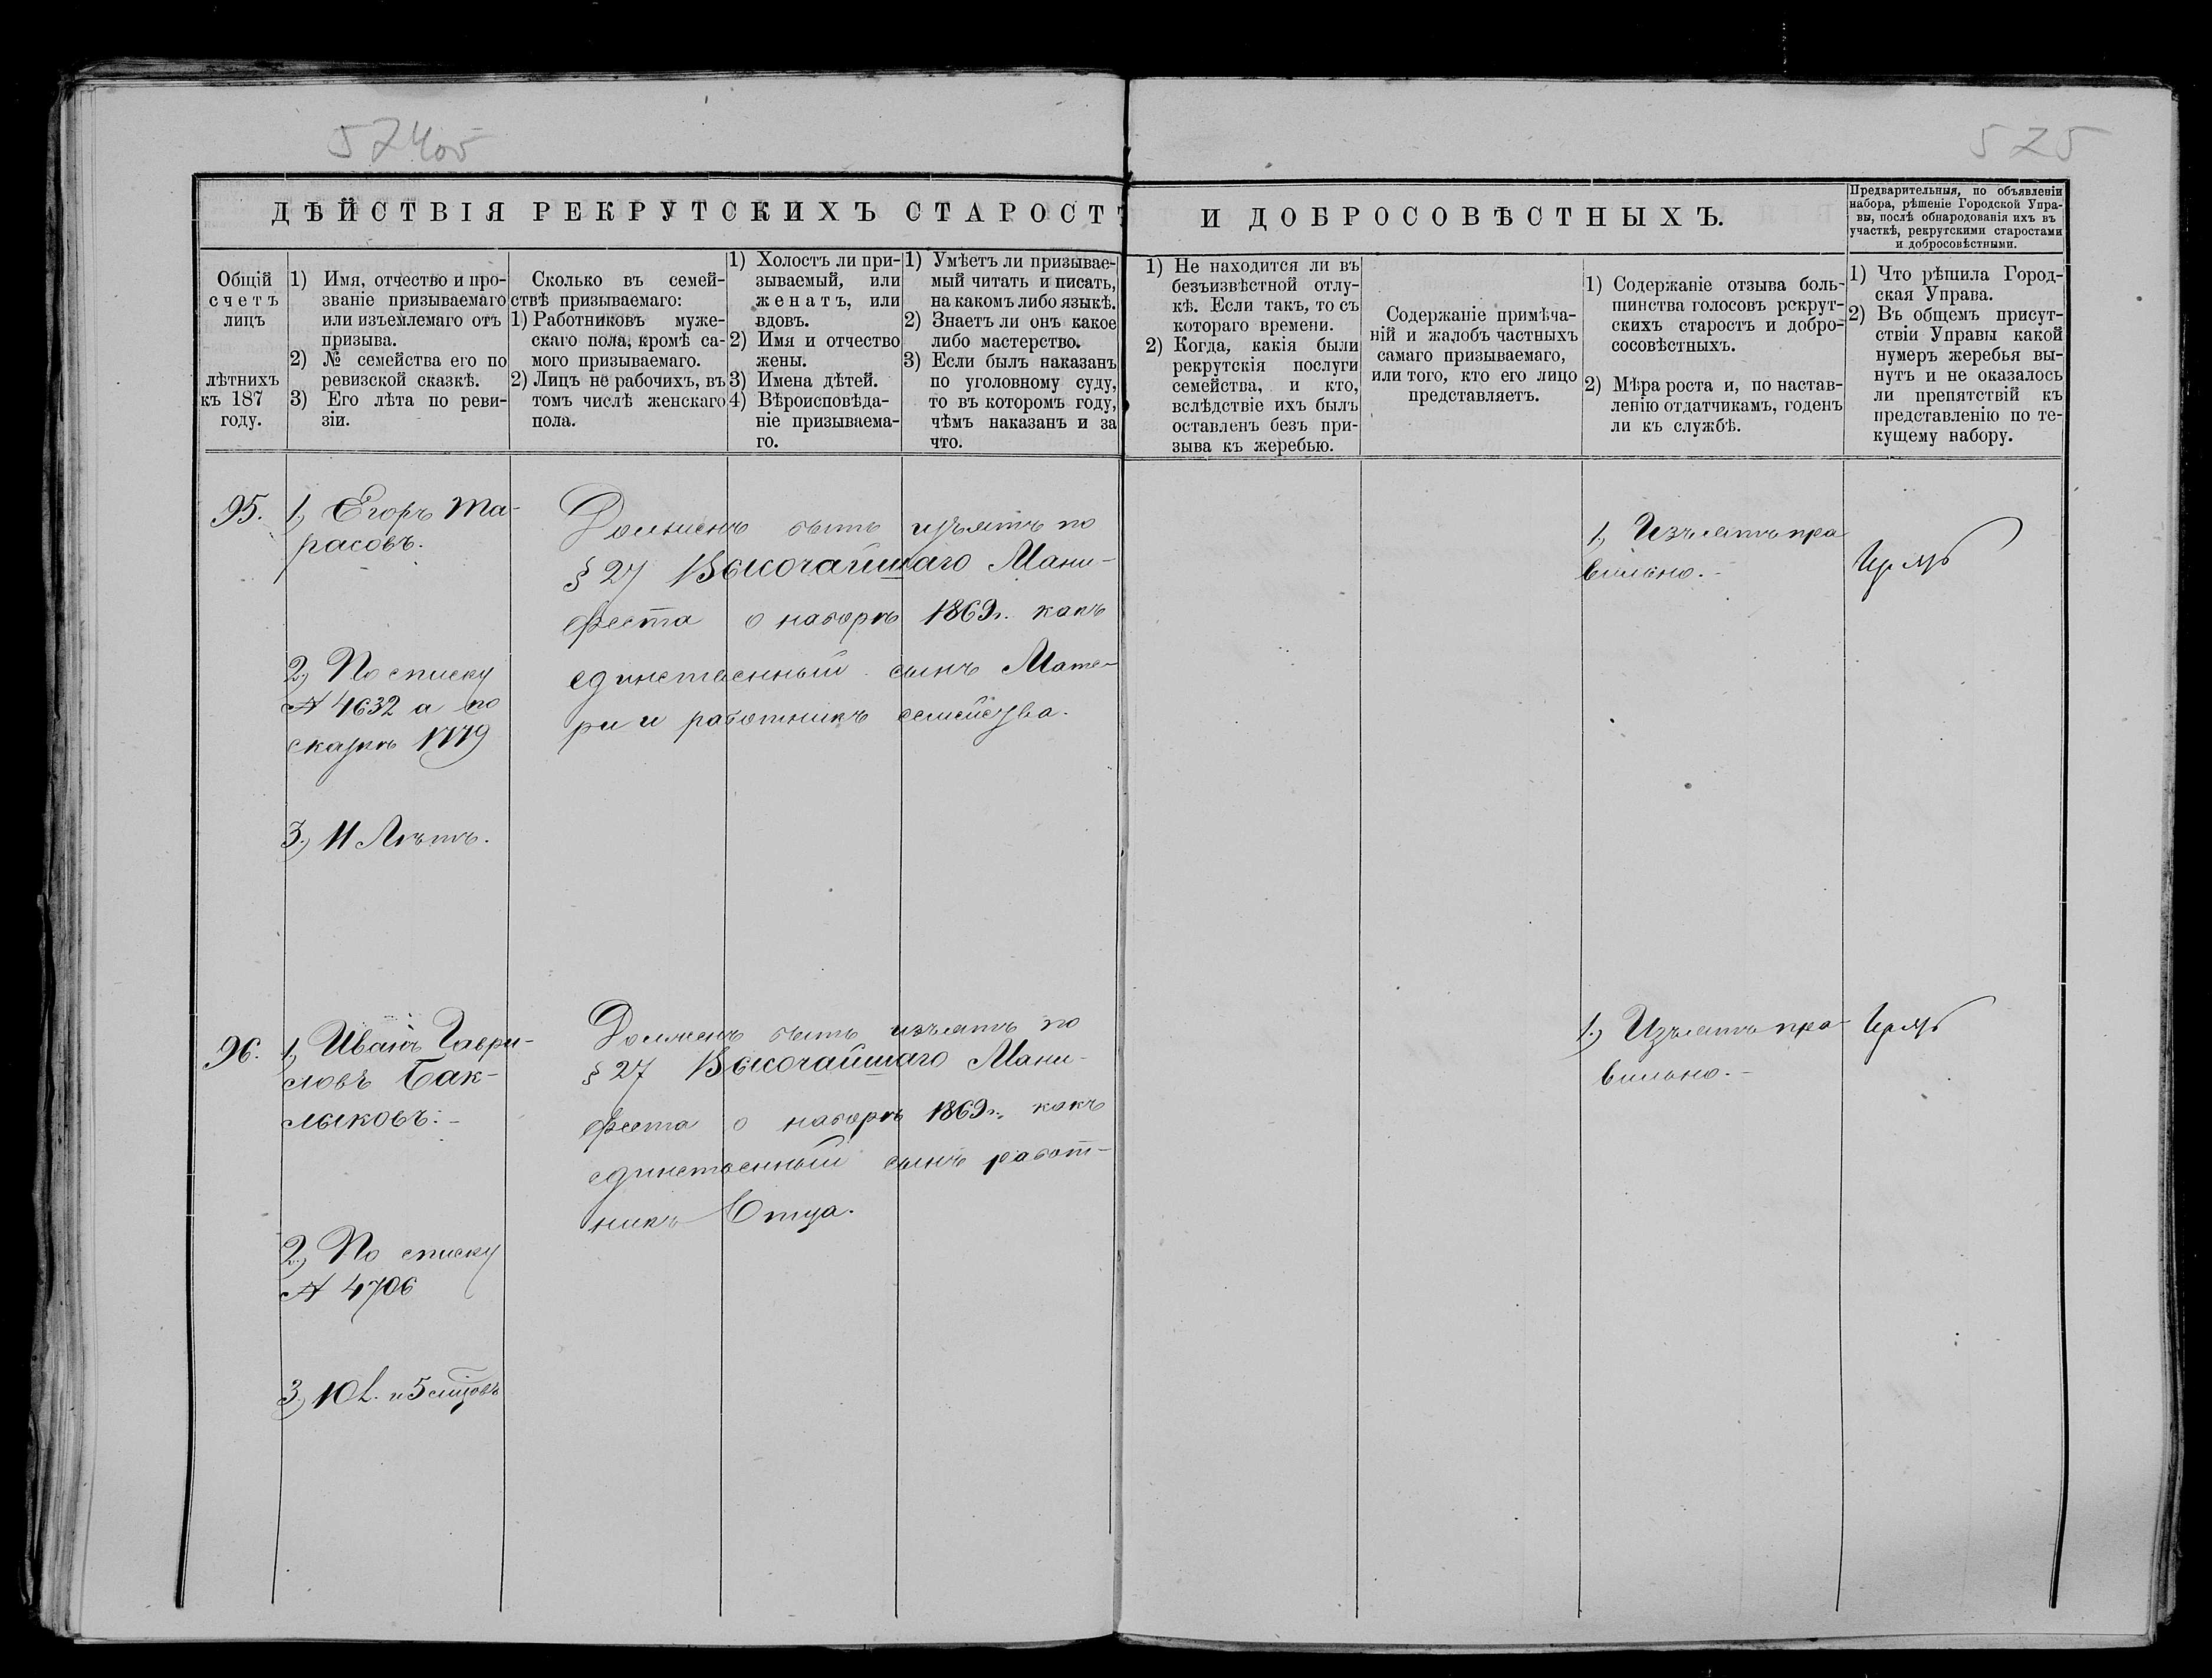 574об
525
ДѢЙСТВІЯ РЕКРУТСКИХЪ СТАРОСТЪ И ДОБРОСОВѢСТНЫХЪ.
Предварительныя, по объявленіи
набора, рѣшеніе Городской Упра-
вы, послѣ обнародованія ихъ въ
участкѣ, рекрутскими старостами
и добросовѣстными.
Общій
счетъ
лицъ
лѣтнихъ
къ 187
году.
1) Имя, отчество и про-
званіе призываемаго
или изъемлемаго отъ
призыва.
2) № семейства его по
ревизской сказкѣ.
3) Его лѣта по реви-
зіи.
Сколько въ семей-
ствѣ призываемаго:
1) Работниковъ муже-
скаго пола, кромѣ са-
мого призываемаго.
2) Лицъ не рабочихъ, въ
томъ числѣ женскаго
пола.
1) Холостъ ли при-
зываемый, или
женатъ, или
вдовъ.
2) Имя и отчество
жены.
3) Имена дѣтей.
4) Вѣроисповѣда-
ніе призываема-
го.
1) Умѣетъ ли призывае-
мый читать и писать,
на какомъ либо языкѣ.
2) Знаетъ ли онъ какое
либо мастерство.
3) Если былъ наказанъ
по уголовному суду,
то въ которомъ году,
чѣмъ наказанъ и за
что.
1) Не находится ли въ
безъизвѣстной отлу-
кѣ. Если такъ, то съ
котораго времени.
2) Когда, какія были
рекрутскія послуги
семейства, и кто,
вслѣдствіе ихъ былъ
оставленъ безъ при-
зыва къ жеребью.
Содержаніе примѣча-
ній и жалобъ частныхъ
самаго призываемаго,
или того, кто его лицо
представляетъ.
1) Содержаніе отзыва боль-
шинства голосовъ рекрут-
скихъ старостъ и добро-
сосовѣстныхъ.
2) Мѣра роста и, по настав-
ленію отдатчикамъ, годенъ
ли къ службѣ.
1) Что рѣшила Город-
ская Управа.
2) Въ общемъ присут-
ствіи Управы какой
нумеръ жеребья вы-
нутъ и не оказалось
ли препятствій къ
представленію по те-
кущему набору.
95.
1, Егоръ Та-
расовъ.
2, По списку
№ 4632 а по
сказкѣ 1779
3, 11 Лѣтъ.
Долженъ быть изъятъ по
§ 27 Высочайшаго Мани-
феста о наборѣ 1869г. какъ
единственный сынъ Мате-
ри и работникъ семейства.
1, Изъятъ пра
вильно.-
96.
1, Иванъ Гаври-
ловъ Бак-
лыковъ.-
2, По списку
№ 4706
3, 10 L. и 5 мцовъ
Долженъ быть изъятъ по
§ 27 Высочайшаго Мани-
феста о наборѣ 1869г. какъ
единственный сынъ работ-
никъ Отца.
1, Изъятъ пра
вильно.-